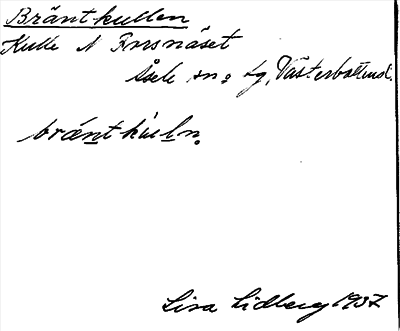 Bräntkullen
Kulle N Forsnäset
Åsele sn o lg, Västerbottens l.
bräntkúln.
Lisa Lidberg 1937